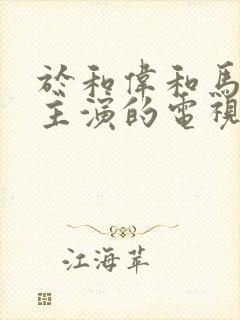 於和偉和馬
主演的電視
江海萍